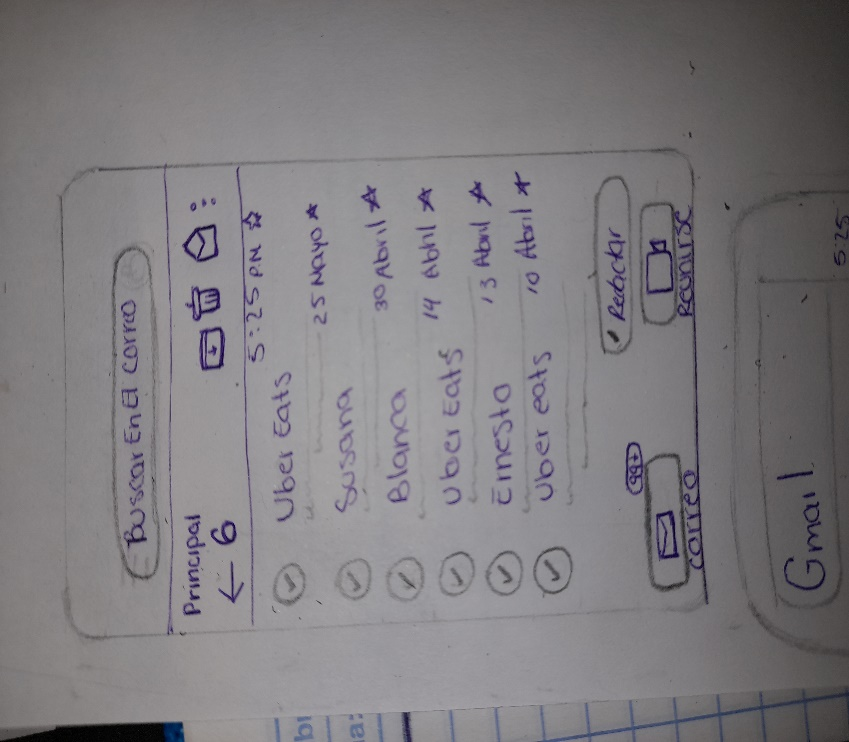 Buscar En El Correo
Principal
← 6
5:25 PM
Uber Eats
25 Mayo
Susana
30 Abril
Blanca
14 Abril
Uber Eats
13 Abril
Ernesto
10 Abril
Uber eats
Redactar
99+
correo
Reunirse
Gmail
5:25